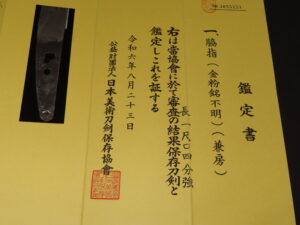 鑑定書
一、脇指(金粉銘不明)(兼房)
長一尺〇四分強
右は當協會に於て審査の結果保存刀剣と
鑑定しこれを証する
令和六年八月二十三日
公益財團法人日本美術刀剣保存協會